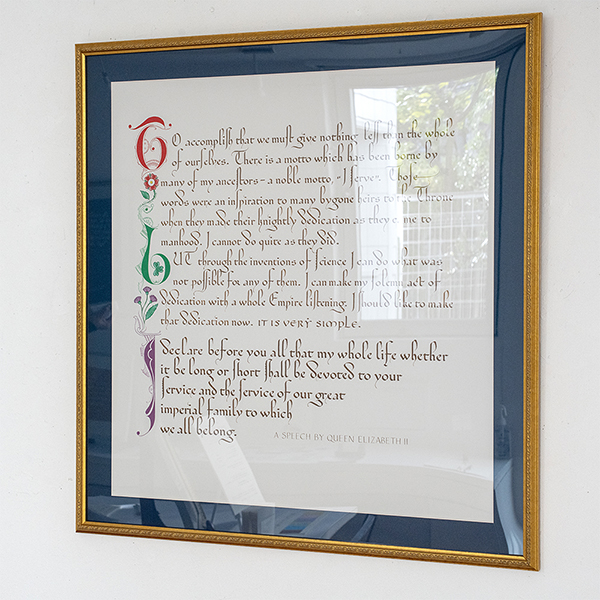 TO accomplish that we must give nothing less than the whole
of ourselves. There is a motto which has been borne by
many of my ancestors - a noble motto, "I serve". Those
words were an inspiration to many bygone heirs to the Throne
when they made their knightly dedication as they came to
manhood. I cannot do quite as they did.
BUT through the inventions of science I can do what was
not possible for any of them. I can make my solemn act of
dedication with a whole Empire listening. I should like to make
that dedication now. IT IS VERY SIMPLE.
I declare before you all that my whole life whether
it be long or short shall be devoted to your
service and the service of our great
imperial family to which
we all belong.
A SPEECH BY QUEEN ELIZABETH II